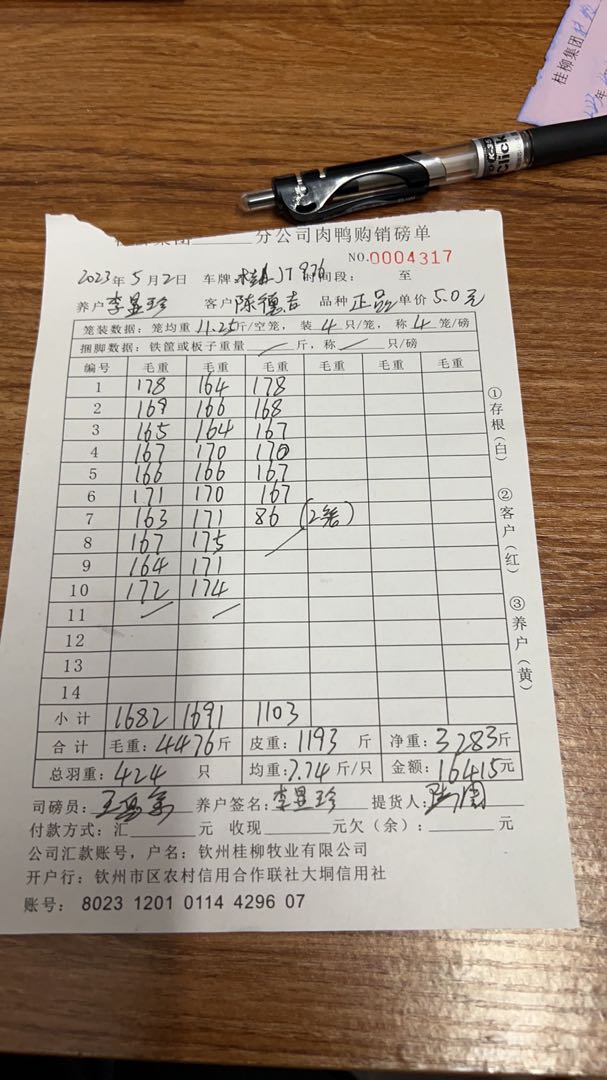 分公司肉鸭购销磅单
NO.0004317
2023年5月2日 车牌 JT976 时间段: 至
养户 李显珍 客户 陈德吉 品种 正品 单价 5.0元
笼装数据: 笼均重 11.25斤/空笼, 装 4 只/笼, 称 4 笼/磅
捆脚数据: 铁筐或板子重量 / 斤, 称 / 只/磅
编号 毛重 毛重 毛重 毛重 毛重 毛重
1 178 164 178
2 169 166 168
3 165 164 167
4 167 170 170
5 166 166 167
6 171 170 167
7 163 171 86 (2笼)
8 167 175 /
9 164 171
10 172 174
11 / /
12
13
14
小计 1682 1691 1103
合计 毛重: 4476斤 皮重: 1193 斤 净重: 3283斤
总羽重: 424 只 均重: 7.74 斤/只 金额: 16415元
司磅员: 养户签名: 李显珍 提货人:
付款方式: 汇 元 收现 元欠(余): 元
公司汇款账号, 户名: 钦州桂柳牧业有限公司
开户行: 钦州市区农村信用合作联社大垌信用社
账号: 8023 1201 0114 4296 07
①存根(白)
②客户(红)
③养户(黄)
桂柳集团
年
Click